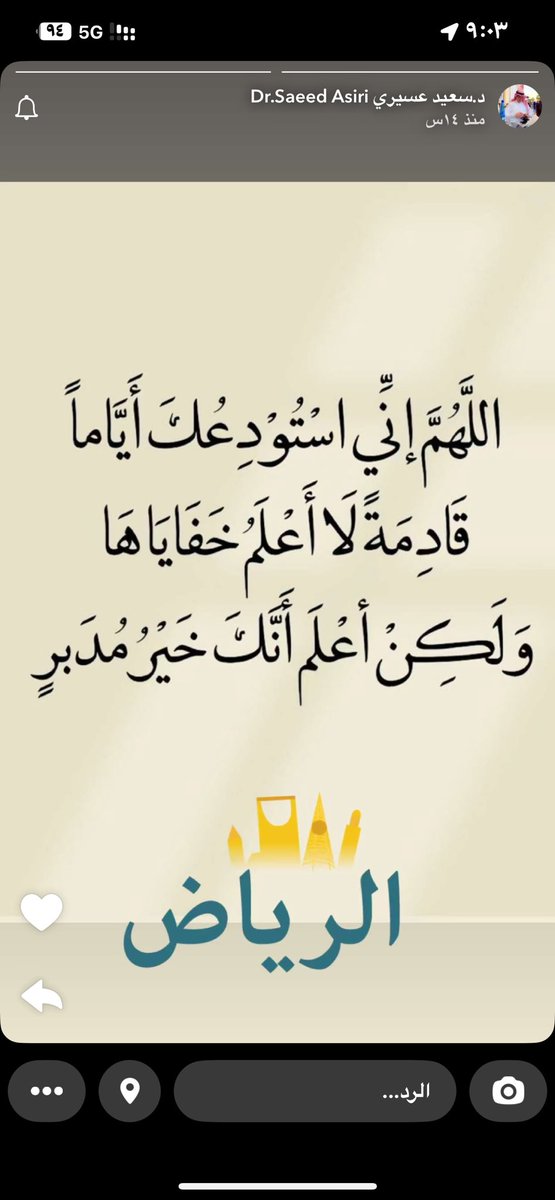 ٩:٠٣
5G ٩٤
د.سعيد عسيري Dr.Saeed Asiri
منذ ١٤س
اللَّهُمَّ إنِّي اسْتُوْدِعُكَ أَيَّاماً
قَادِمَةً لَا أَعْلَمُ خَفَايَا هَا
وَلَكِنْ أعْلَم أَنَّكَ خَيْرُ مُدَبرٍ
الرياض
الرد...